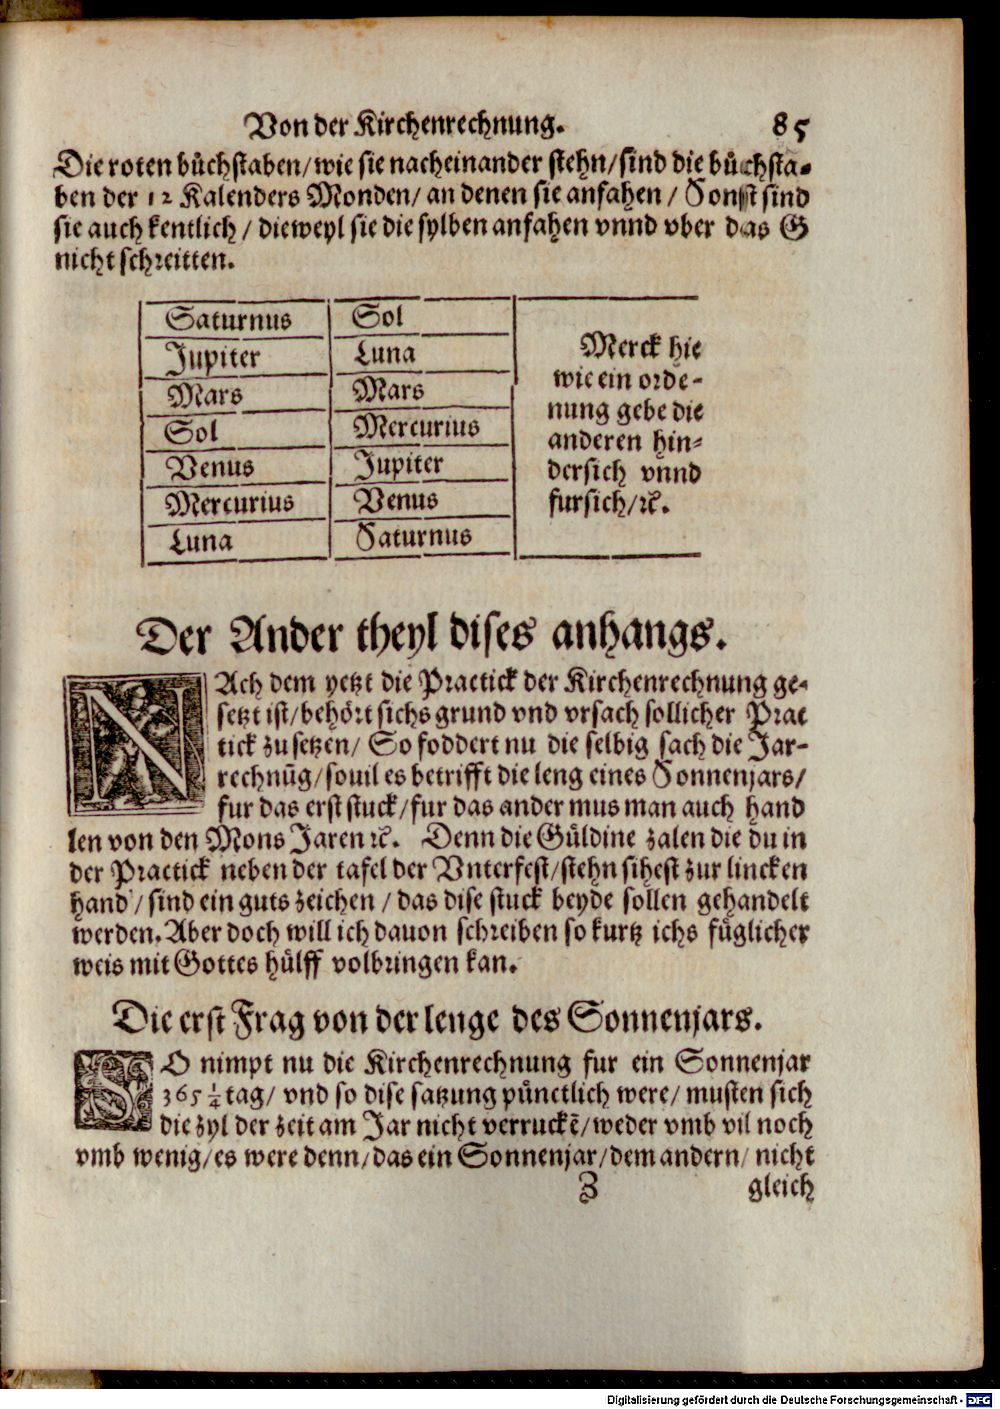 Von der Kirchenrechnung. 85
Die roten bůchstaben/wie sie nacheinander stehn/sind die bůchsta-
ben der 12 Kalenders Monden/an denen sie anfahen/Sonst sind
sie auch kentlich/dieweyl sie die sylben anfahen vnnd vber das G
nicht schreitten.
Saturnus Sol
Jupiter Luna
Mars Mars
Sol Mercurius
Venus Jupiter
Mercurius Venus
Luna Saturnus
Merck hie
wie ein orde-
nung gebe die
anderen hin-
dersich vnnd
fursich/ꝛc.
Der Ander theyl dises anhangs.
NAch dem yetzt die Practick der Kirchenrechnung ge-
setzt ist/behört sichs grund vnd vrsach sollicher Prac
tick zu setzen/So foddert nu die selbig sach die Jar-
rechnũg/souil es betrifft die leng eines Sonnenjars/
fur das erst stuck/fur das ander mus man auch hand
len von den Mons Jaren ꝛc. Denn die Güldine zalen die du in
der Practick neben der tafel der Vnterfest/stehn sihest zur lincken
hand/sind ein guts zeichen/das dise stuck beyde sollen gehandelt
werden. Aber doch will ich dauon schreiben so kurtz ichs füglicher
weis mit Gottes hülff volbringen kan.
Die erst Frag von der lenge des Sonnenjars.
SO nimpt nu die Kirchenrechnung fur ein Sonnenjar
365 1/4 tag/vnd so dise satzung pünctlich were/musten sich
die zyl der zeit am Jar nicht verruckẽ/weder vmb vil noch
vmb wenig/es were denn/das ein Sonnenjar/dem andern/nicht
Z gleich
Digitalisierung gefördert durch die Deutsche Forschungsgemeinschaft - DFG